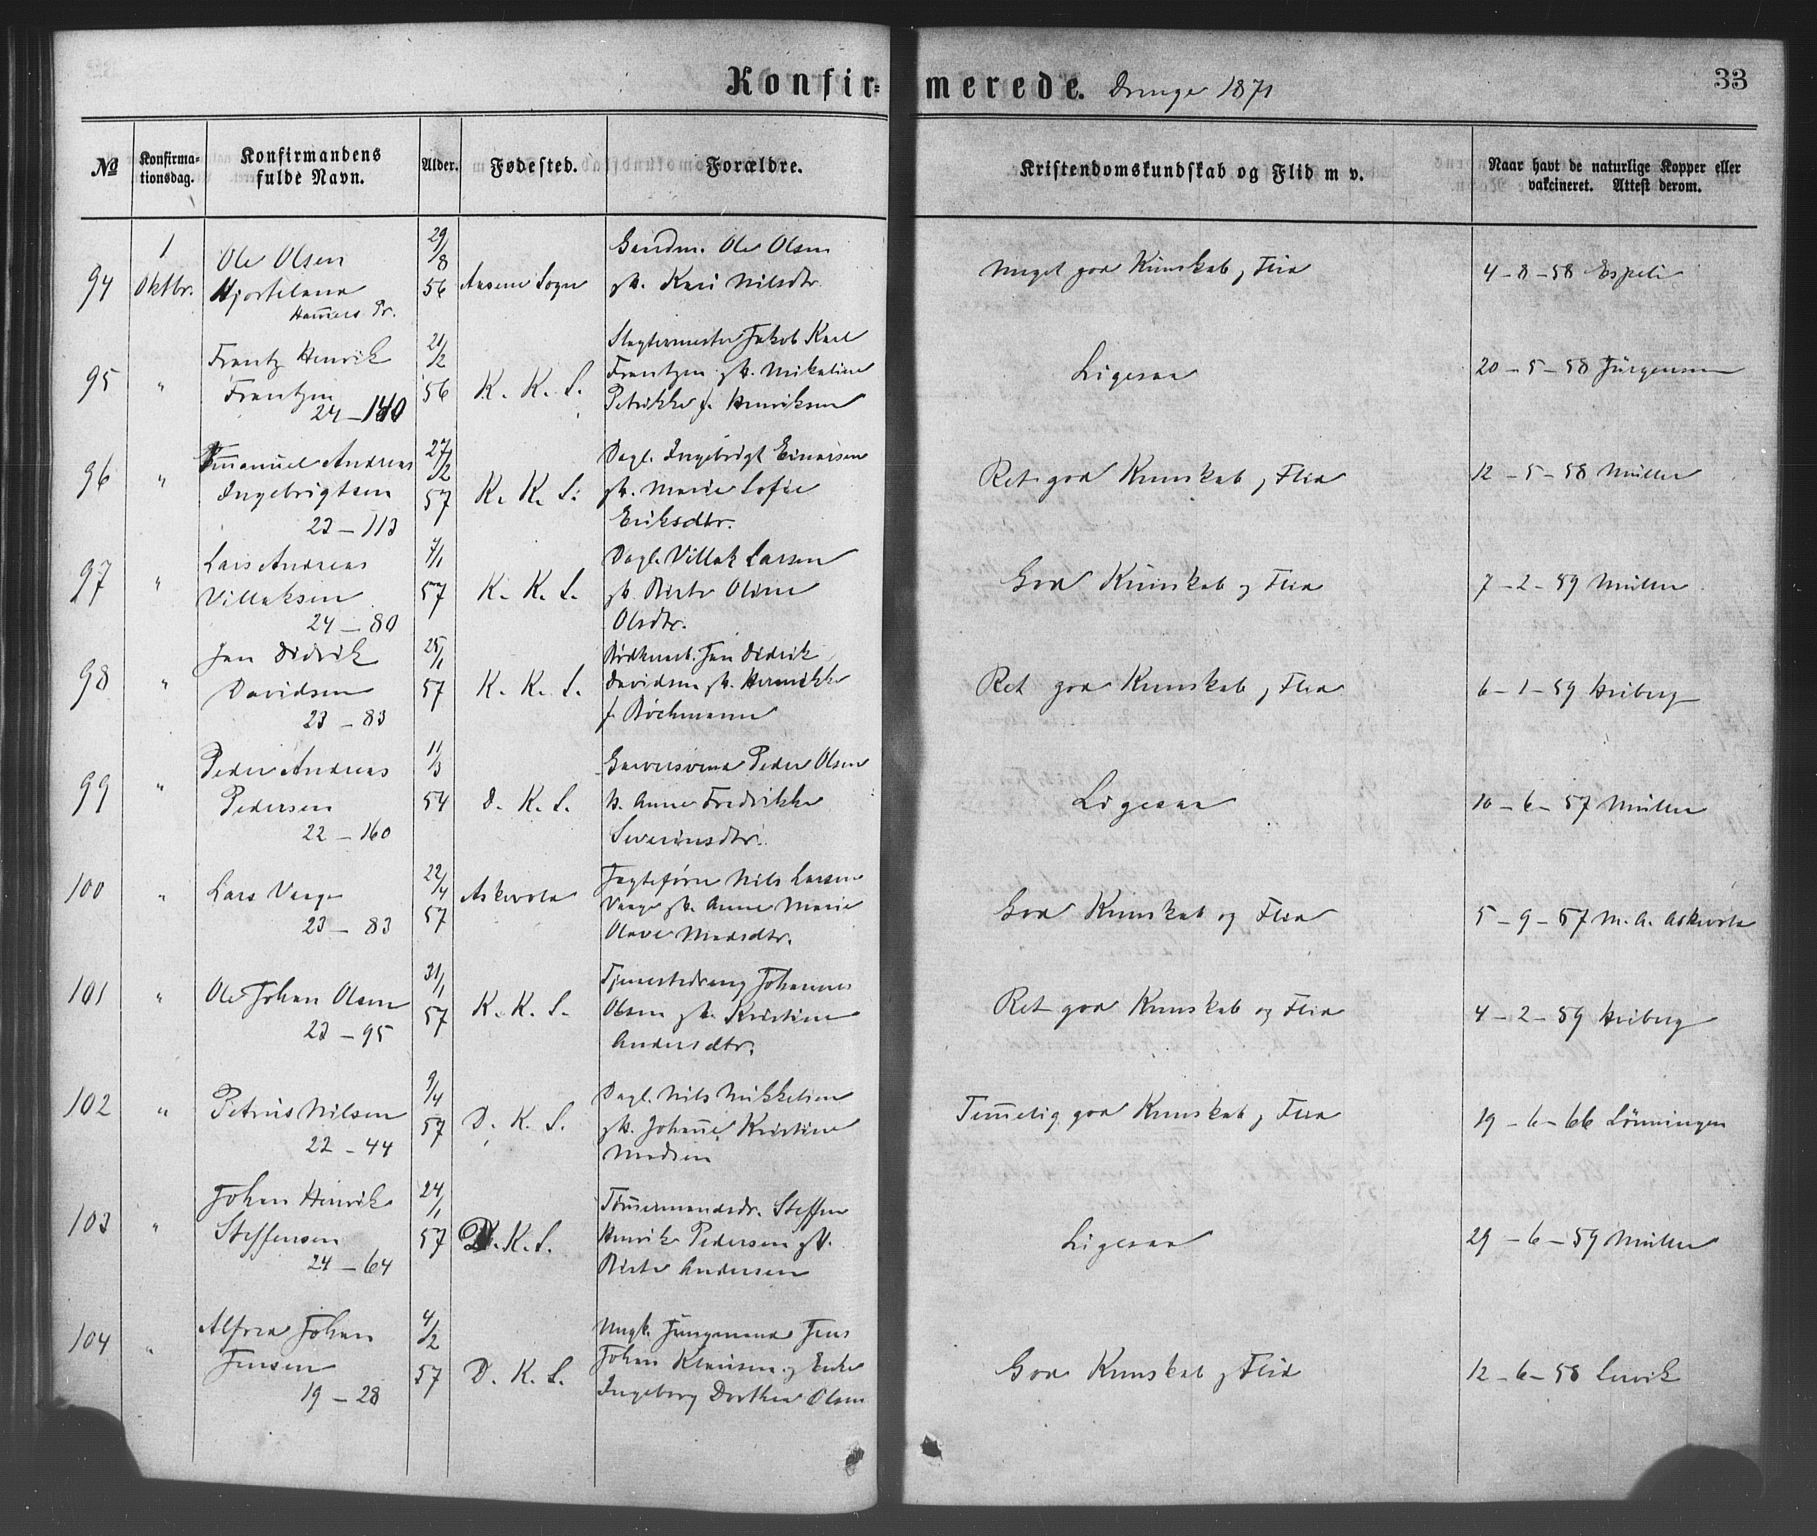 Konfirmerede. Drenge 1871
33
№
Konfirmationsdag.
Konfirmandens fulde Navn.
Alder.
Fødested.
Forældre.
Kristendomskundskab og Flid m v.
Naar havt de naturlige Kopper eller vakcineret. Attest derom.
94
1 Oktbr.
Ole Olsen
Hjorteland
29/8 56
Aasene Sogn
Gaardm. Ole Olsen
gk. Kari Nilsdtr.
Meget god Kunskab og Flid
4-8-58 Espeli
95
"
Frantz Henrik
Frantzen
24-140
21/2 56
K. K. S.
Slagtermester Jakob Karl
Frantzen gk. Mikaline
Petrikke f. Henriksen
Ligesaa
20-5-58 Jürgensen
96
"
Emanuel Andreas
Ingebrigtsen
23-113
27/2 57
K. K. S.
Dagl. Ingebrigt Einarsen
gk. Marie Sofie
Eriksdtr.
Ret god Kunskab og Flid
12-5-58 Müller
97
"
Lars Andreas
Villaksen
24-80
7/1 57
K. K. S.
Dagl. Villak Larsen
gk. Birte Oline
Olsdtr.
God Kunskab og Flid
7-2-59 Müller
98
"
Jan Didrik
Davidsen
23-83
25/1 57
K. K. S.
Bødkersv. Jan Didrik
Davidsen gk. Hermikke
f. Böchmann
Ret god Kunskab og Flid
6-1-59 Heiberg
99
"
Peder Andreas
Pedersen
22-160
11/3 54
D. K. S.
Garversvend Peder Olsen
k. Anne Fredrikke
Severinsdtr.
Ligesaa
10-6-57 Müller
100
"
Lars Vaage
23-83
22/4 57
Askevold
Jægtefører Nils Larsen
Vaage gk. Anne Marie
Olave Madsdtr.
God Kunskab og Flid
5-9-57 M. A. Askevold
101
"
Ole Johan Olsen
23-95
31/1 57
K. K. S.
Tjenestedreng Johannes
Olsen gk. Kristine
Andersdtr.
Ret god Kunskab og Flid
4-2-59 Heiberg
102
"
Petrus Nilsen
22-44
9/4 57
D. K. S.
Dagl. Nils Mikkelsen
gk. Johanne Kristine
Madsen
Temmelig god Kunskab og Flid
19-6-66 Lönningen
103
"
Johan Henrik
Steffensen
24-64
24/1 57
D. K. S.
Tømmermandsdr. Steffen
Henrik Pedersen gk.
Birte Andersen
Ligesaa
29-6-59 Müller
104
"
Alfred Johan
Jensen
19-28
4/2 57
D. K. S.
Ungk. Jungmand Jens
Johan Klausen og Enke
Ingeborg Dorthea Olsen
God Kunskab og Flid
12-6-58 Lervik